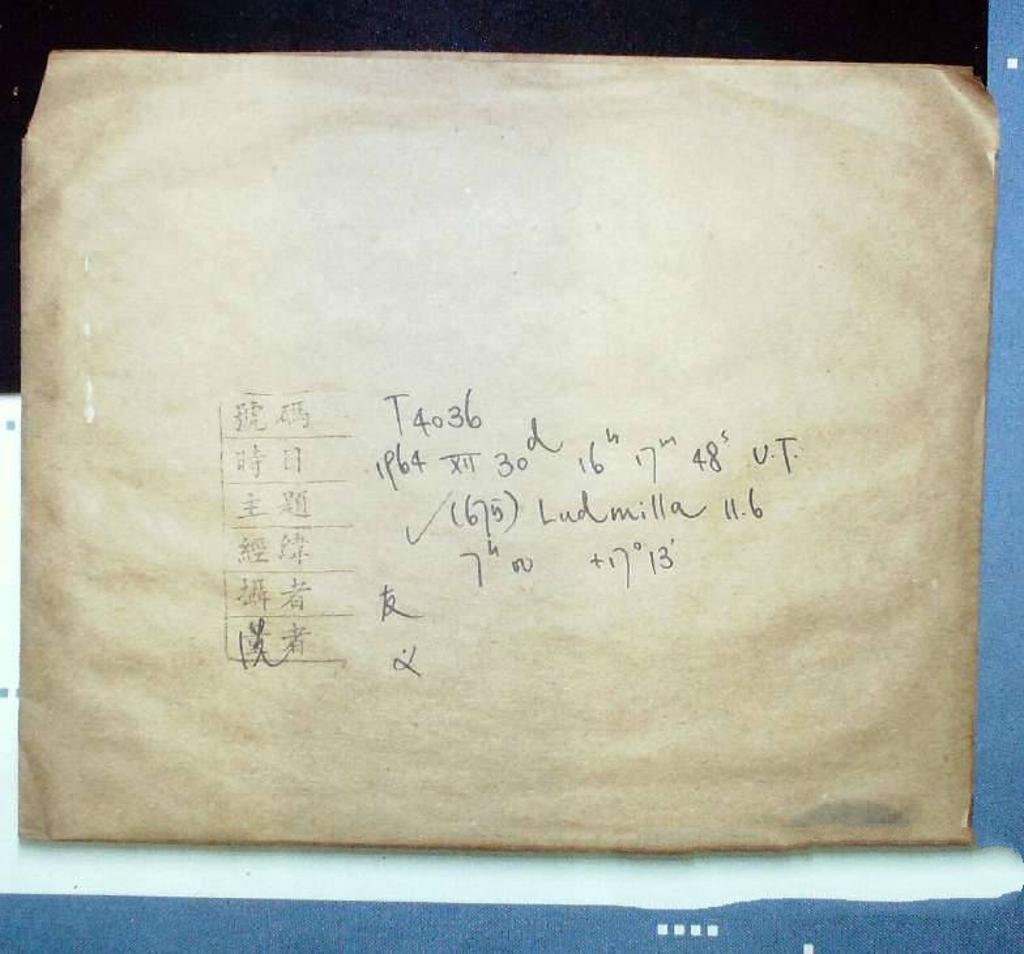 號碼 T4036
時日 1964 XII 30d 16h 17m 48s U.T.
主題 ✓(675) Ludmilla 11.6
經緯 7h 00 +17°13'
攝者 友
者 义